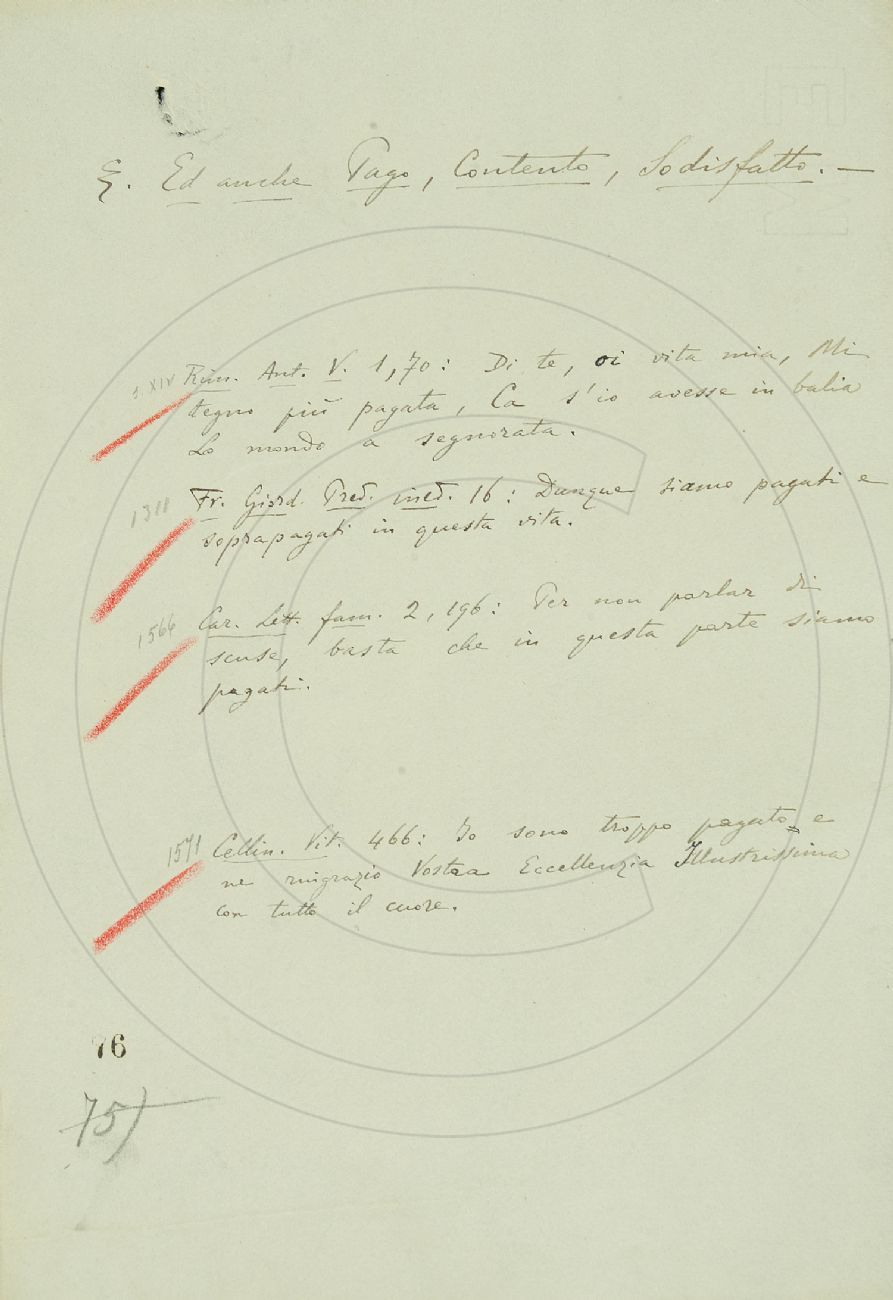 §. Ed anche Pago, Contento, Sodisfatto. —
s. XIV Rim. Ant. V. 1, 70: Di te, oi vita mia, Mi
tegno più pagata, Ca s'io avesse in balia
Lo mondo a segnorata.
1311 Fr. Giord. Pred. ined. 16: Dunque siamo pagati e
soprapagati in questa vita.
1566 Car. Lett. fam. 2, 196: Per non parlar di
scuse, basta che in questa parte siamo
pagati.
1571 Cellin. Vit. 466: Io sono troppo pagato, e
ne ringrazio Vostra Eccellenzia Illustrissima
con tutto il cuore.
76
75)